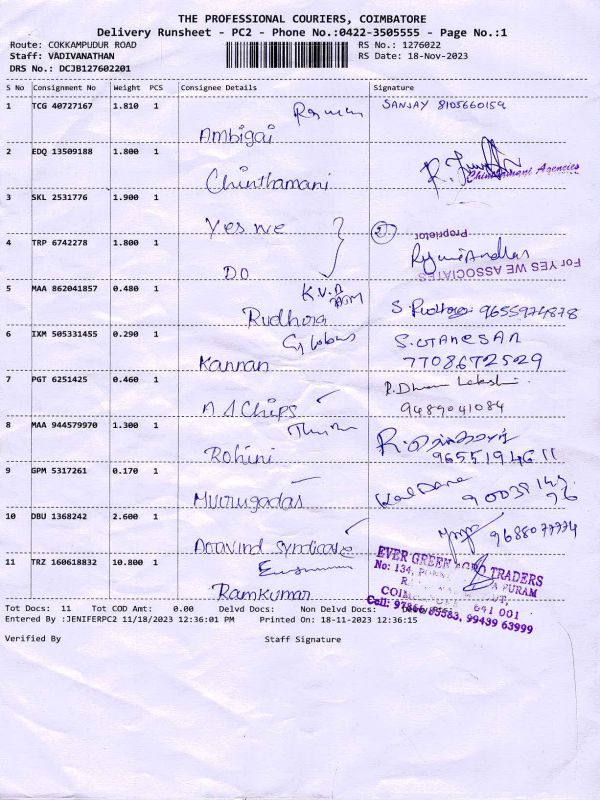 THE PROFESSIONAL COURIERS, COIMBATORE
Delivery Runsheet - PC2 - Phone No.:0422-3505555 - Page No.:1
Route: COKKAMPUDUR ROAD RS No.: 1276022
Staff: VADIVANATHAN RS Date: 18-Nov-2023
DRS No.: DCJB127602201
S No Consignment No Weight PCS Consignee Details Signature
1 TCG 40727167 1.810 1 SANJAY 8105660159
Ambigai
2 EDQ 13509188 1.800 1
Chinthamani Chinthamani Agencies
3 SKL 2531776 1.900 1
Yes we
Proprietor
4 TRP 6742278 1.800 1
DO For YES WE ASSOCIATES
5 MAA 862041857 0.480 1 K.V.B
Rudhora 9655974878
6 IXM 505331455 0.290 1
Kannan 7708672529
7 PGT 6251425 0.460 1
A1 Chips 9489041084
8 MAA 944579970 1.300 1
Rohini 9655194611
9 GPM 5317261 0.170 1
Murugadas
10 DBU 1368242 2.600 1
Aravind Syndicate
11 TRZ 160618832 10.800 1 EVER GREEN AGRO TRADERS
Ramkumar No: 134,
641 001
Tot Docs: 11 Tot COD Amt: 0.00 Delvd Docs: Non Delvd Docs:
99439 63999
Entered By :JENIFERPC2 11/18/2023 12:36:01 PM Printed On: 18-11-2023 12:36:15
Verified By Staff Signature